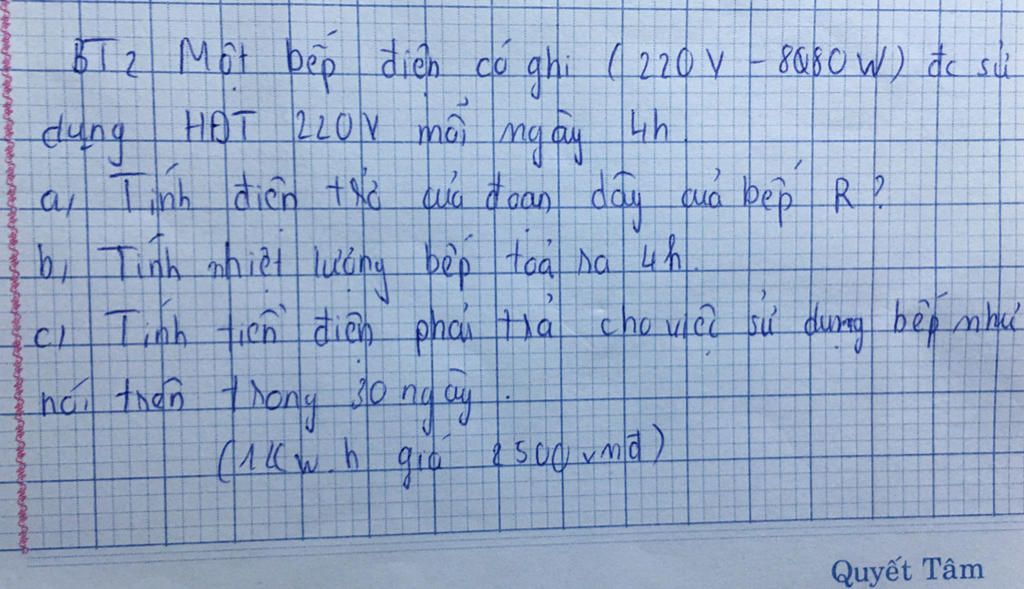 BT2 Một bếp điện có ghi (220V - 880W) đc sử
dụng HĐT 220V mỗi ngày 4h
a, Tính điện trở của đoạn dây của bếp R?
b, Tính nhiệt lượng bếp toả ra 4h.
c, Tính tiền điện phải trả cho việc sử dụng bếp như
nói trên trong 30 ngày.
(1KW.h giá 2500 vnđ)
Quyết Tâm